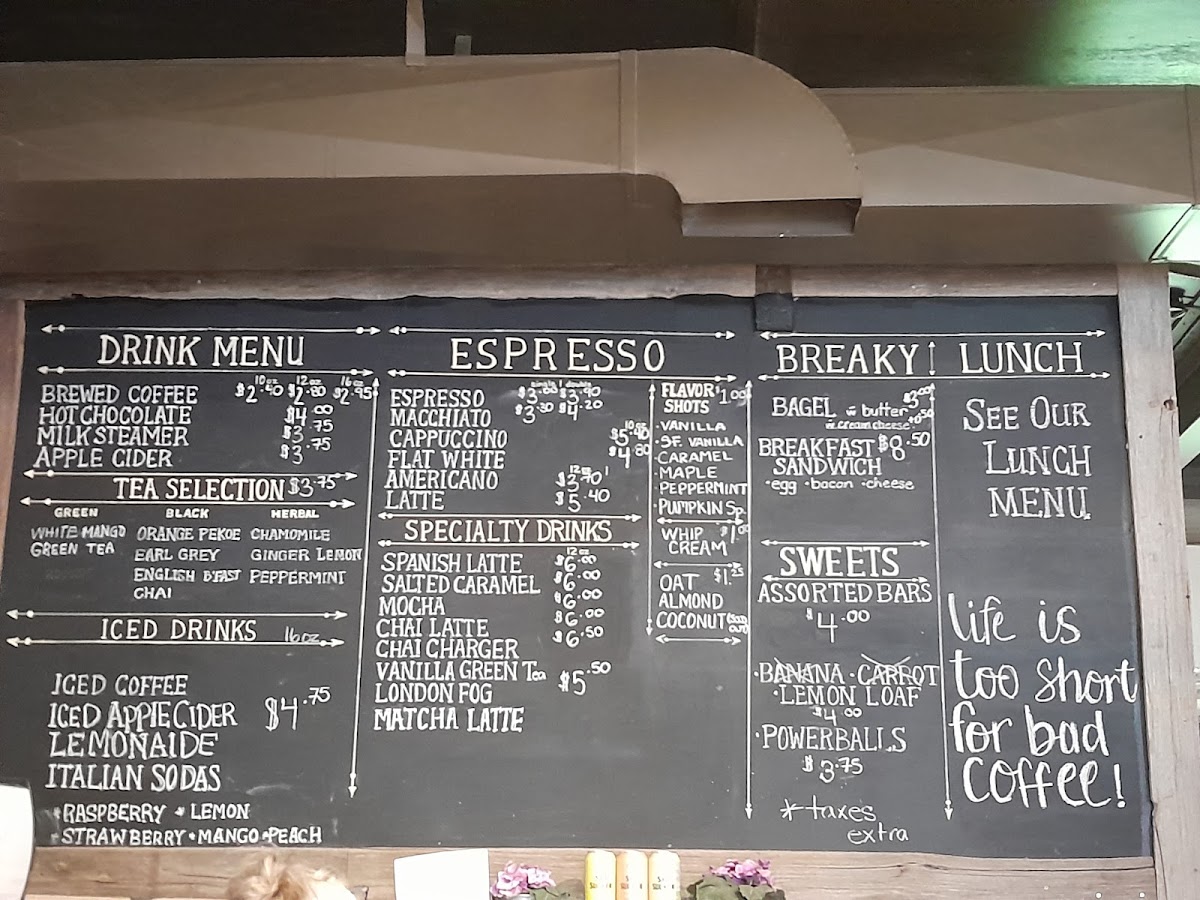 DRINK MENU
10oz 12oz 16oz
BREWED COFFEE $2.40 $2.80 $2.95
HOT CHOCOLATE $4.00
MILK STEAMER $3.75
APPLE CIDER $3.75
TEA SELECTION $3.75
GREEN BLACK HERBAL
WHITE MANGO ORANGE PEKOE CHAMOMILE
GREEN TEA EARL GREY GINGER LEMON
ENGLISH B'FAST PEPPERMINT
CHAI
ICED DRINKS 16oz
ICED COFFEE
ICED APPLE CIDER $4.75
LEMONAIDE
ITALIAN SODAS
RASPBERRY LEMON
STRAWBERRY MANGO PEACH
ESPRESSO
single double
ESPRESSO $3.00 $3.90
MACCHIATO $3.30 $4.20
10oz
CAPPUCCINO $5.40
FLAT WHITE $4.80
12oz
AMERICANO
LATTE $5.40
SPECIALTY DRINKS
12oz
SPANISH LATTE $6.00
SALTED CARAMEL $6.00
MOCHA $6.00
CHAI LATTE $6.00
CHAI CHARGER $6.50
VANILLA GREEN Tea
LONDON FOG $5.50
MATCHA LATTE
FLAVOR $1.00
SHOTS
VANILLA
SF. VANILLA
CARAMEL
MAPLE
PEPPERMINT
PUMPKIN Sp.
WHIP $1.00
CREAM
OAT $1.25
ALMOND
COCONUT
BREAKY
BAGEL w butter $3.00
w. cream cheese +0.50
BREAKFAST $8.50
SANDWICH
egg bacon cheese
SWEETS
ASSORTED BARS
$4.00
BANANA CARROT
LEMON LOAF
$4.00
POWERBALLS
$3.75
*taxes
extra
LUNCH
SEE OUR
LUNCH
MENU
life is
too short
for bad
coffee!